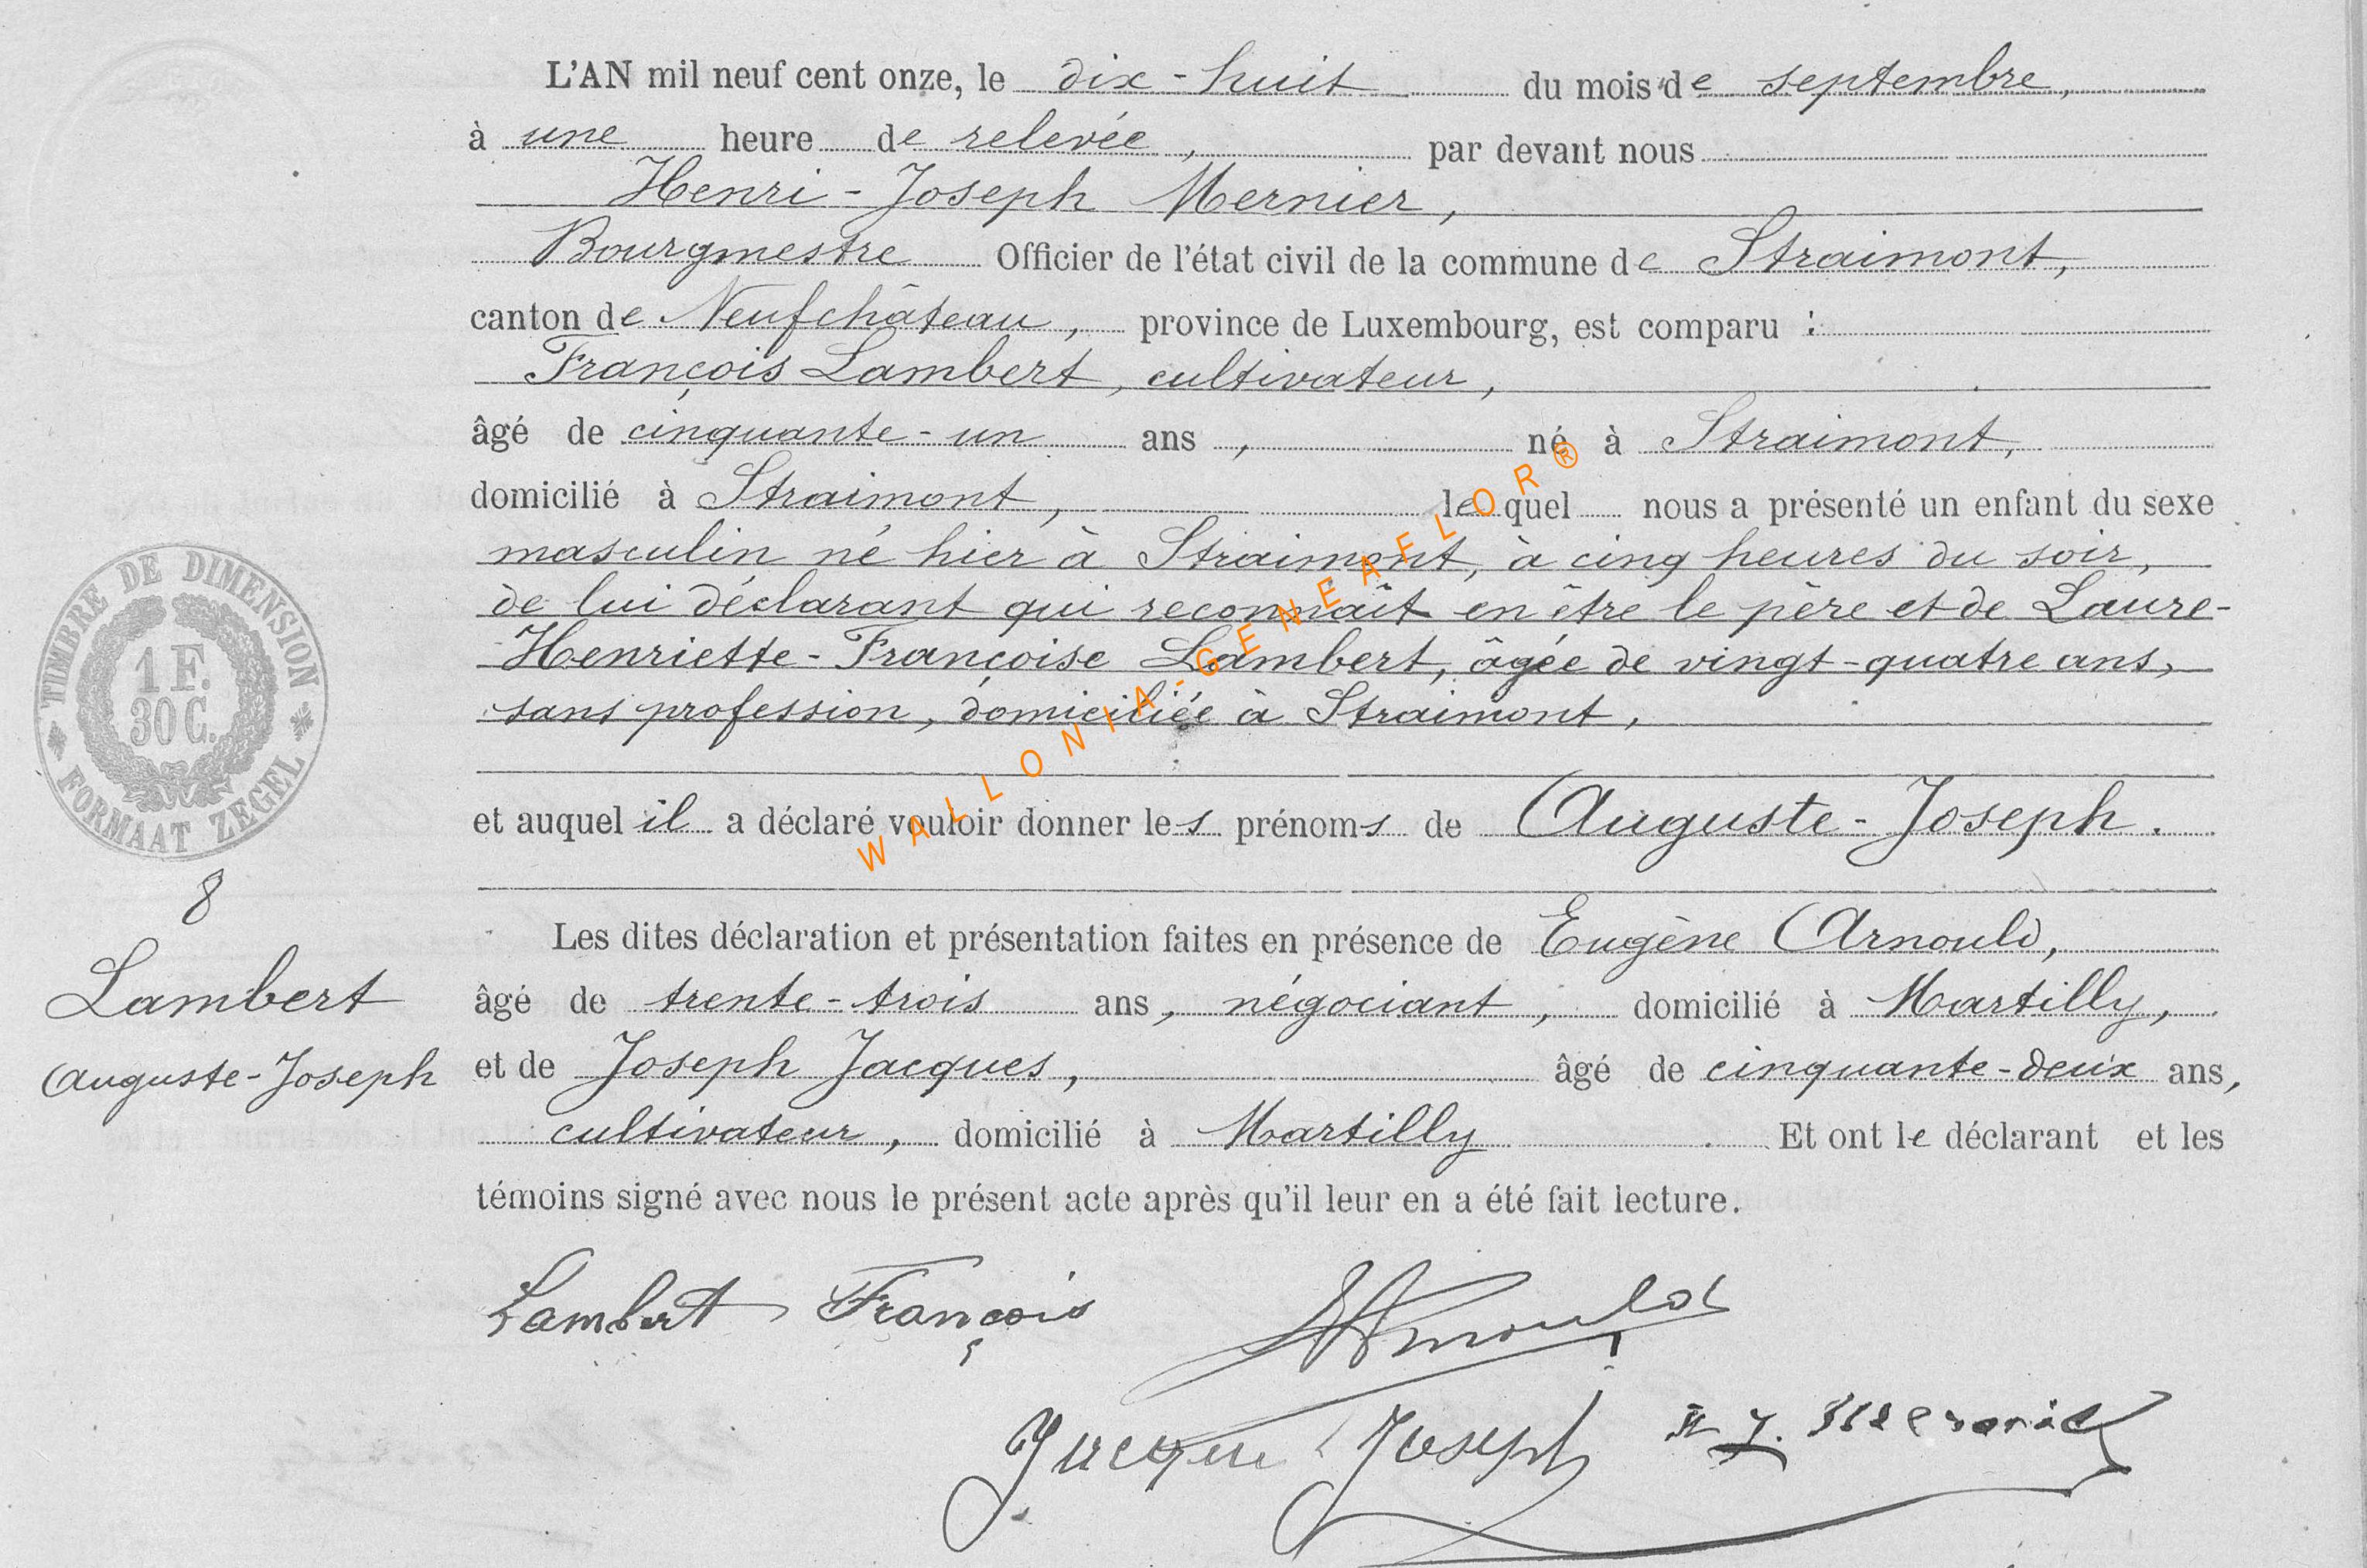 L'AN mil neuf cent onze, le dix-huit du mois de septembre,
à une heure de relevée, par devant nous
Henri-Joseph Mernier,
Bourgmestre Officier de l'état civil de la commune de Straimont,
canton de Neufchâteau, province de Luxembourg, est comparu :
François Lambert, cultivateur,
âgé de cinquante-un ans, né à Straimont,
domicilié à Straimont, lequel nous a présenté un enfant du sexe
masculin né hier à Straimont, à cinq heures du soir,
de lui déclarant qui reconnaît en être le père et de Laure-
Henriette-Françoise Lambert, âgée de vingt-quatre ans,
sans profession, domiciliée à Straimont,
et auquel il a déclaré vouloir donner les prénoms de Auguste-Joseph.
Les dites déclaration et présentation faites en présence de Eugène Arnould,
âgé de trente-trois ans, négociant, domicilié à Martilly,
et de Joseph Jacques, âgé de cinquante-deux ans,
cultivateur, domicilié à Martilly. Et ont le déclarant et les
témoins signé avec nous le présent acte après qu'il leur en a été fait lecture.
TIMBRE DE DIMENSION
1 F.
30 C.
FORMAAT ZEGEL
8
Lambert
Auguste-Joseph
WALLONIA-GENEAFLOR®
Lambert François
Arnould
Jacque Joseph
H J. Mernier